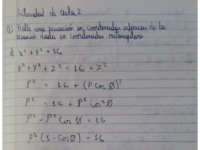 Actividad de aula 2
① Halle una ecuación en coordenadas esféricas de la ecuación dada en coordenadas rectangulares
a) x² + y² = 16
x² + y² + z² = 16 + z²
ρ² = 16 + (ρ cos Ø)²
ρ² = 16 + ρ² cos² Ø
ρ² - ρ² cos Ø = 16
ρ² (1 - cos Ø) = 16